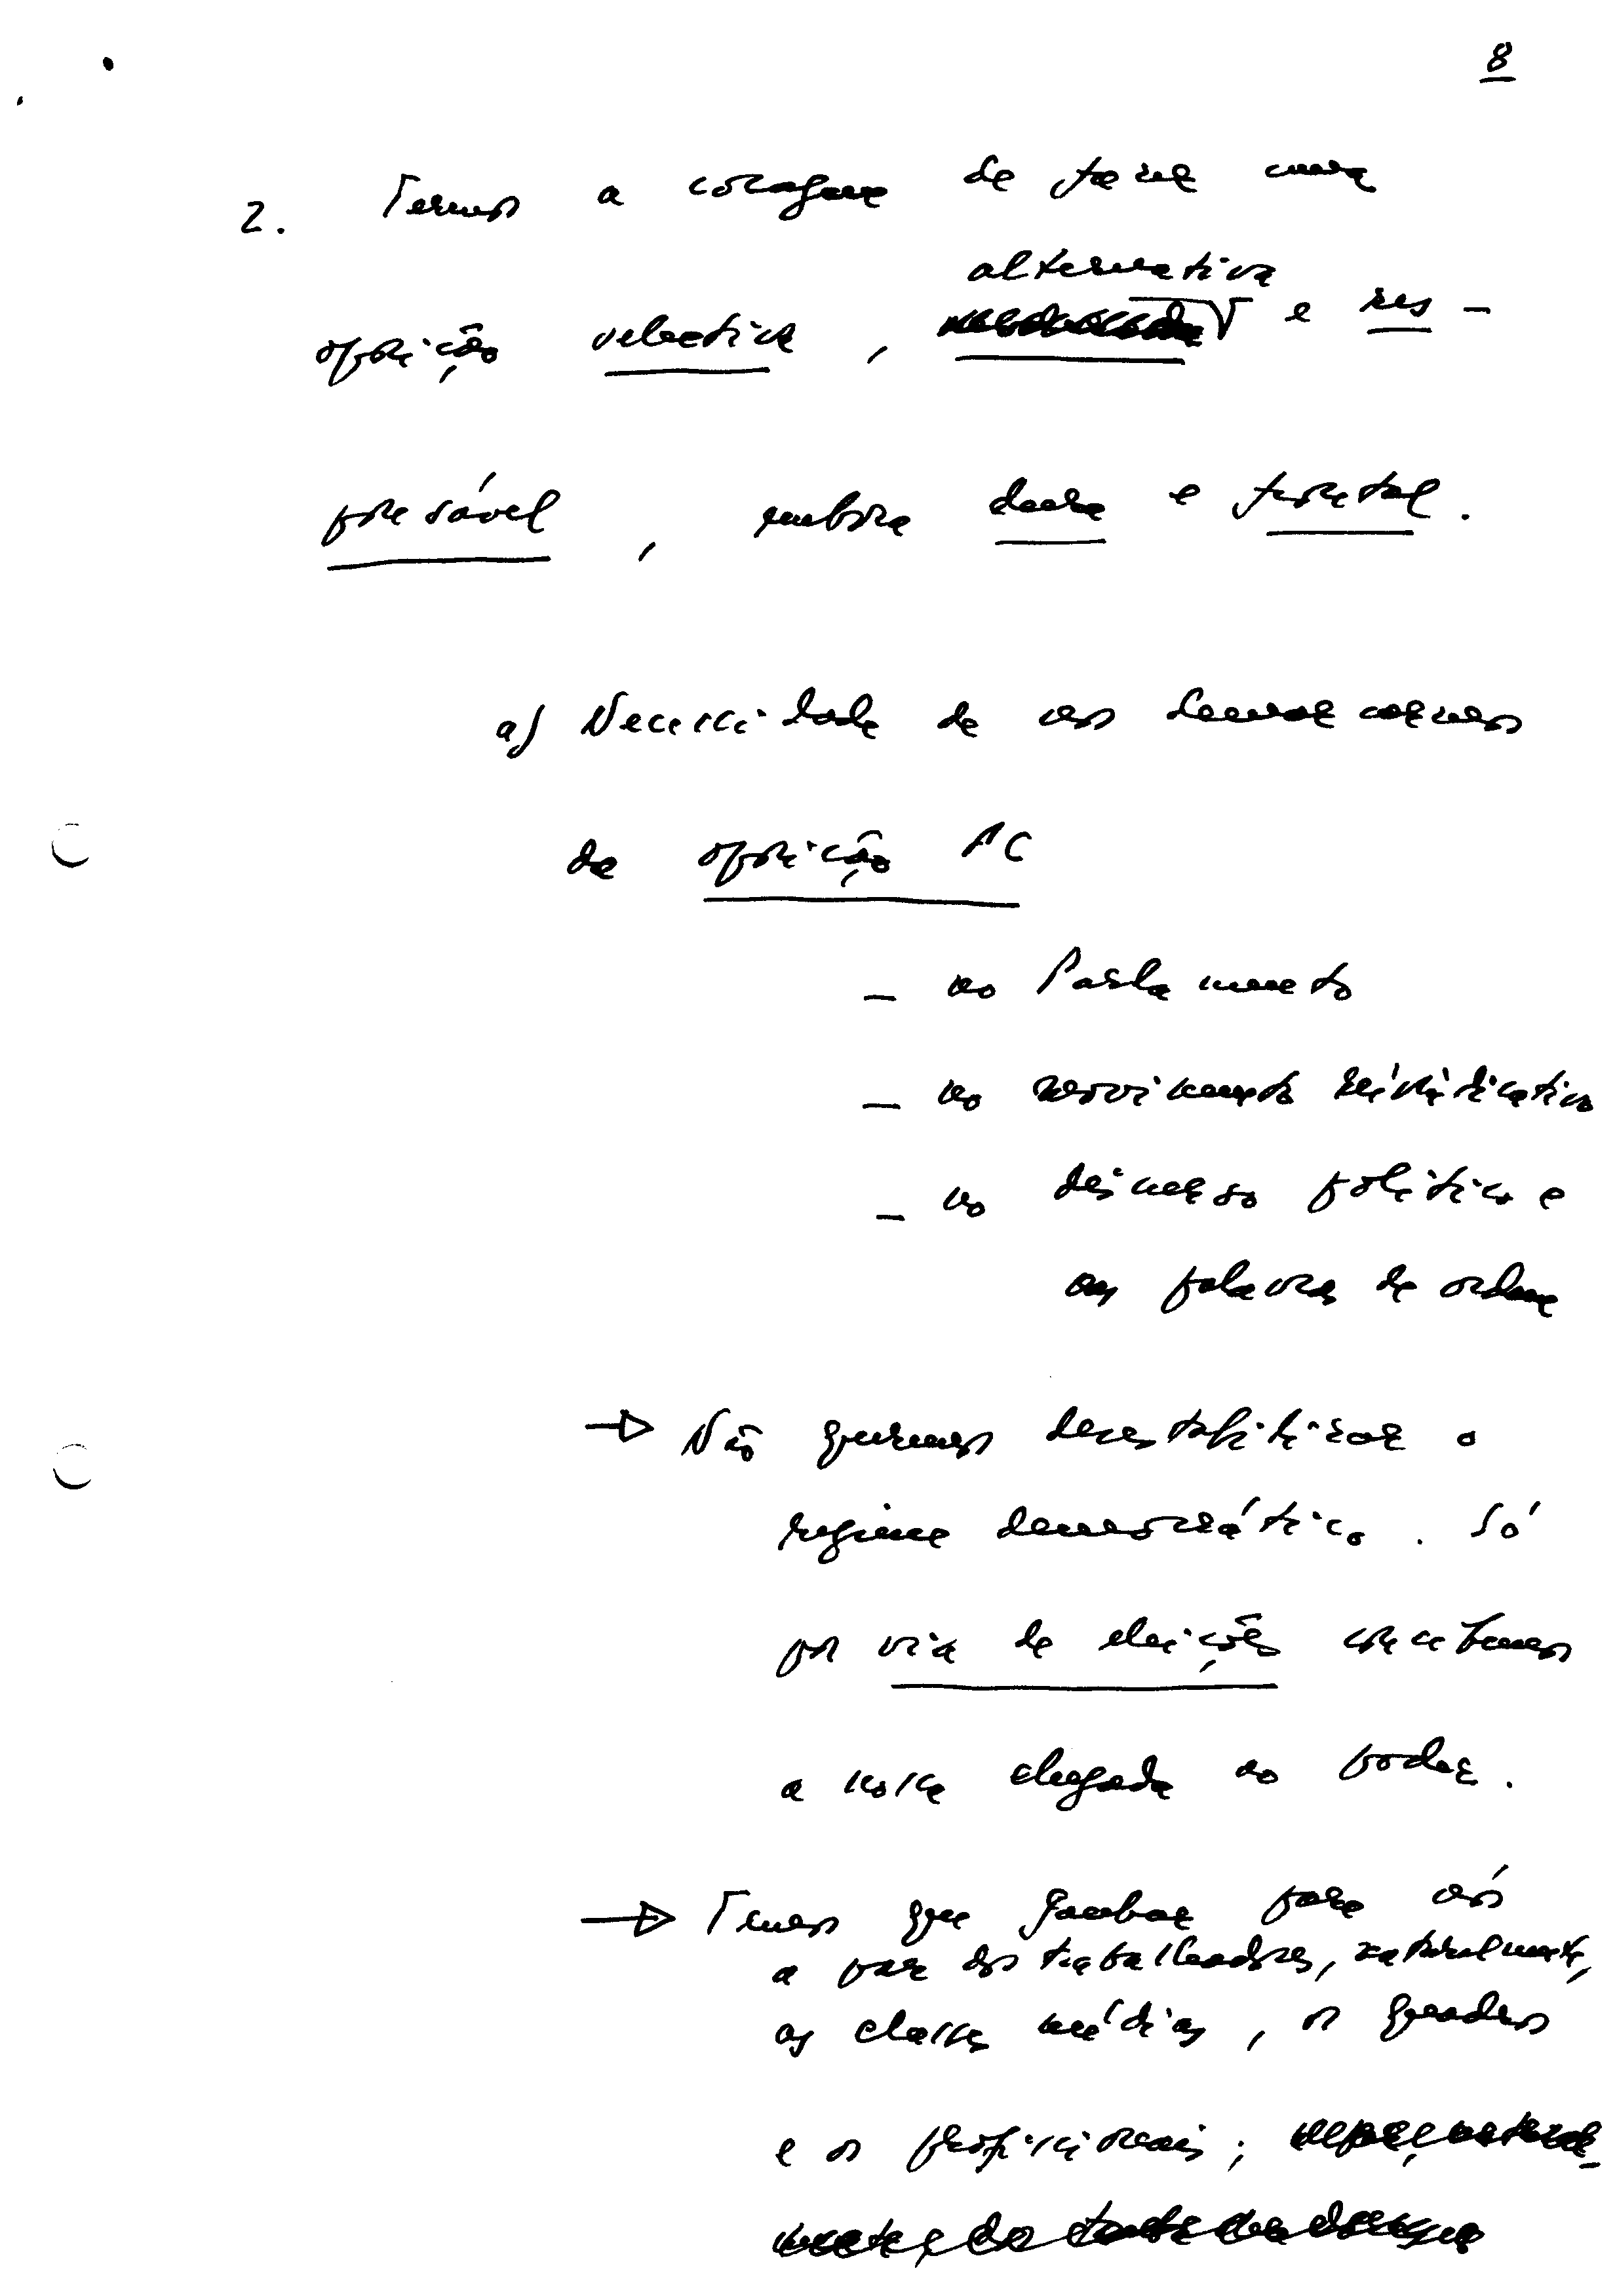 8
2. Temos a coragem de fazer uma
alternativa
oposição selectiva, e res-
ponsável, embora dura e frontal.
a) Necessidade de nos demarcarmos
da oposição PC
- no Parlamento
- no movimento reivindicativo
- no discurso político e
nas palavras de ordem
→ Não queremos desestabilizar o
regime democrático. Só
por via de eleições concebemos
a nossa chegada ao poder.
→ Temos que ganhar para nós
a par dos trabalhadores, naturalmente,
as classes médias, os quadros
e os profissionais;